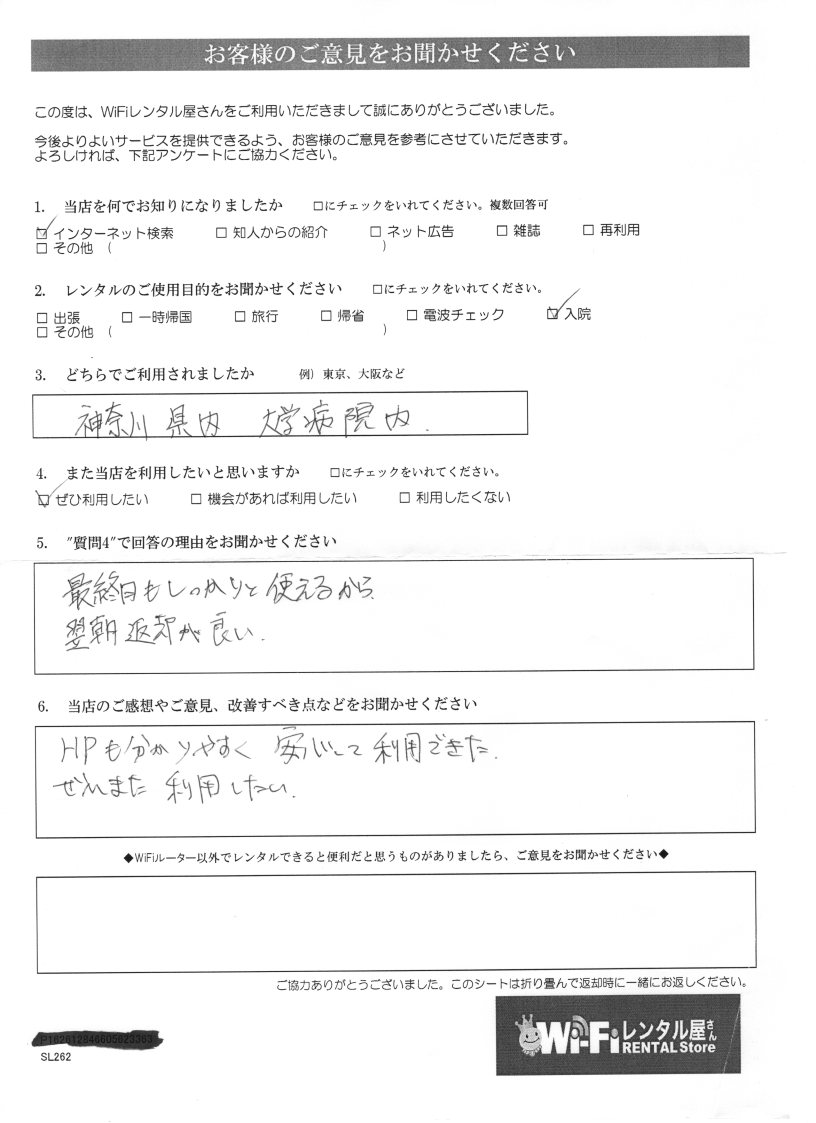 お客様のご意見をお聞かせください
この度は、WiFiレンタル屋さんをご利用いただきまして誠にありがとうございました。
今後よりよいサービスを提供できるよう、お客様のご意見を参考にさせていただきます。
よろしければ、下記アンケートにご協力ください。
1. 当店を何でお知りになりましたか □にチェックをいれてください。複数回答可
☑ インターネット検索 □ 知人からの紹介 □ ネット広告 □ 雑誌 □ 再利用
□ その他 ( )
2. レンタルのご使用目的をお聞かせください □にチェックをいれてください。
□ 出張 □ 一時帰国 □ 旅行 □ 帰省 □ 電波チェック ☑ 入院
□ その他 ( )
3. どちらでご利用されましたか 例) 東京、大阪など
神奈川県内 大学病院内.
4. また当店を利用したいと思いますか □にチェックをいれてください。
☑ ぜひ利用したい □ 機会があれば利用したい □ 利用したくない
5. "質問4"で回答の理由をお聞かせください
最終日もしっかりと使えるから
翌朝返却が良い.
6. 当店のご感想やご意見、改善すべき点などをお聞かせください
HPも分かりやすく 安心して利用できた.
ぜひまた 利用したい.
◆WiFiルーター以外でレンタルできると便利だと思うものがありましたら、ご意見をお聞かせください◆
ご協力ありがとうございました。このシートは折り畳んで返却時に一緒にお返しください。
Wi-Fiレンタル屋さん
RENTAL Store
SL262